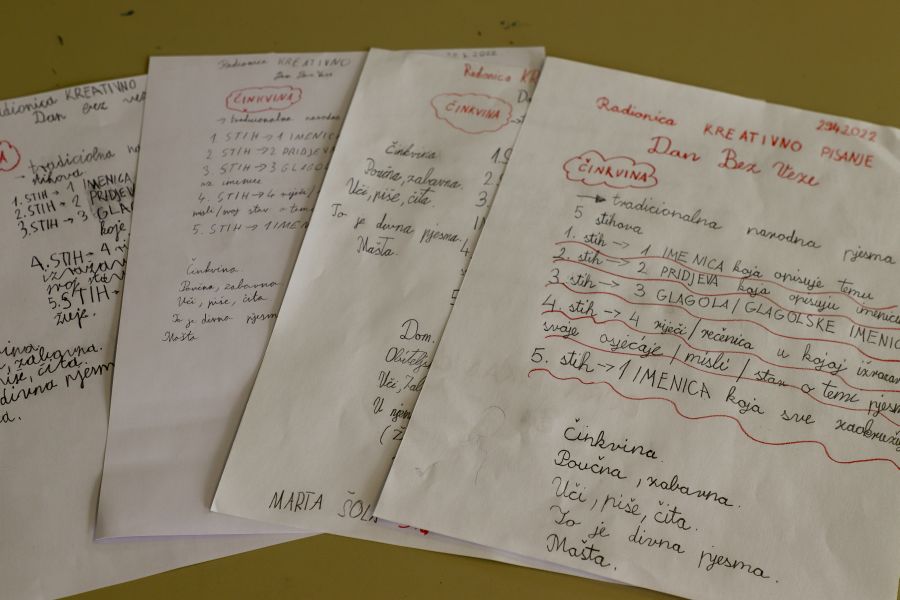 Radionica KREATIVNO
Dan Bez
- tradicionalna
stihova
1. STIH → 1 IMENICA
2. STIH → 2 PRIDJE
3. STIH → 3 GLAG
koje
4. STIH → 4
5. STIH →
zabavna.
piše, čita.
divna pjesm
Radionica KREATIVNO
Dan Bez Veze
ČINKVINA
→ tradicionalna narodna
1. STIH → 1 IMENICA
2 STIH → 2 PRIDJEV
3. STIH → 3 GLAGO
4. STIH → 4 riječi/
misli/svoj stav o temi
5. STIH → 1 IMEN
Činkvina.
Poučna, zabavna.
Uči, piše, čita.
To je divna pjesma
Mašta
2022
Radionica KR
ČINKVINA
Činkvina
Poučna, zabavna.
Uči, piše, čita.
To je divna pjesma.
Mašta.
Dom.
Obitelj
Uči,
U njem
MARTA ŠOL
29.4.2022
Radionica KREATIVNO PISANJE
Dan Bez Veze
ČINKVINA
→ tradicionalna narodna pjesma
5 stihova
1. stih → 1 IMENICA koja opisuje temu
2. stih → 2 PRIDJEVA koja opisuju imenicu
3. stih → 3 GLAGOLA/GLAGOLSKE IMENIC
4. stih → 4 riječi/rečenica u kojoj izražav
svoje osjećaje/misli/stav o temi pjesm
5. stih → 1 IMENICA koja sve zaokružuj
Činkvina.
Poučna, zabavna.
Uči, piše, čita.
To je divna pjesma.
Mašta.